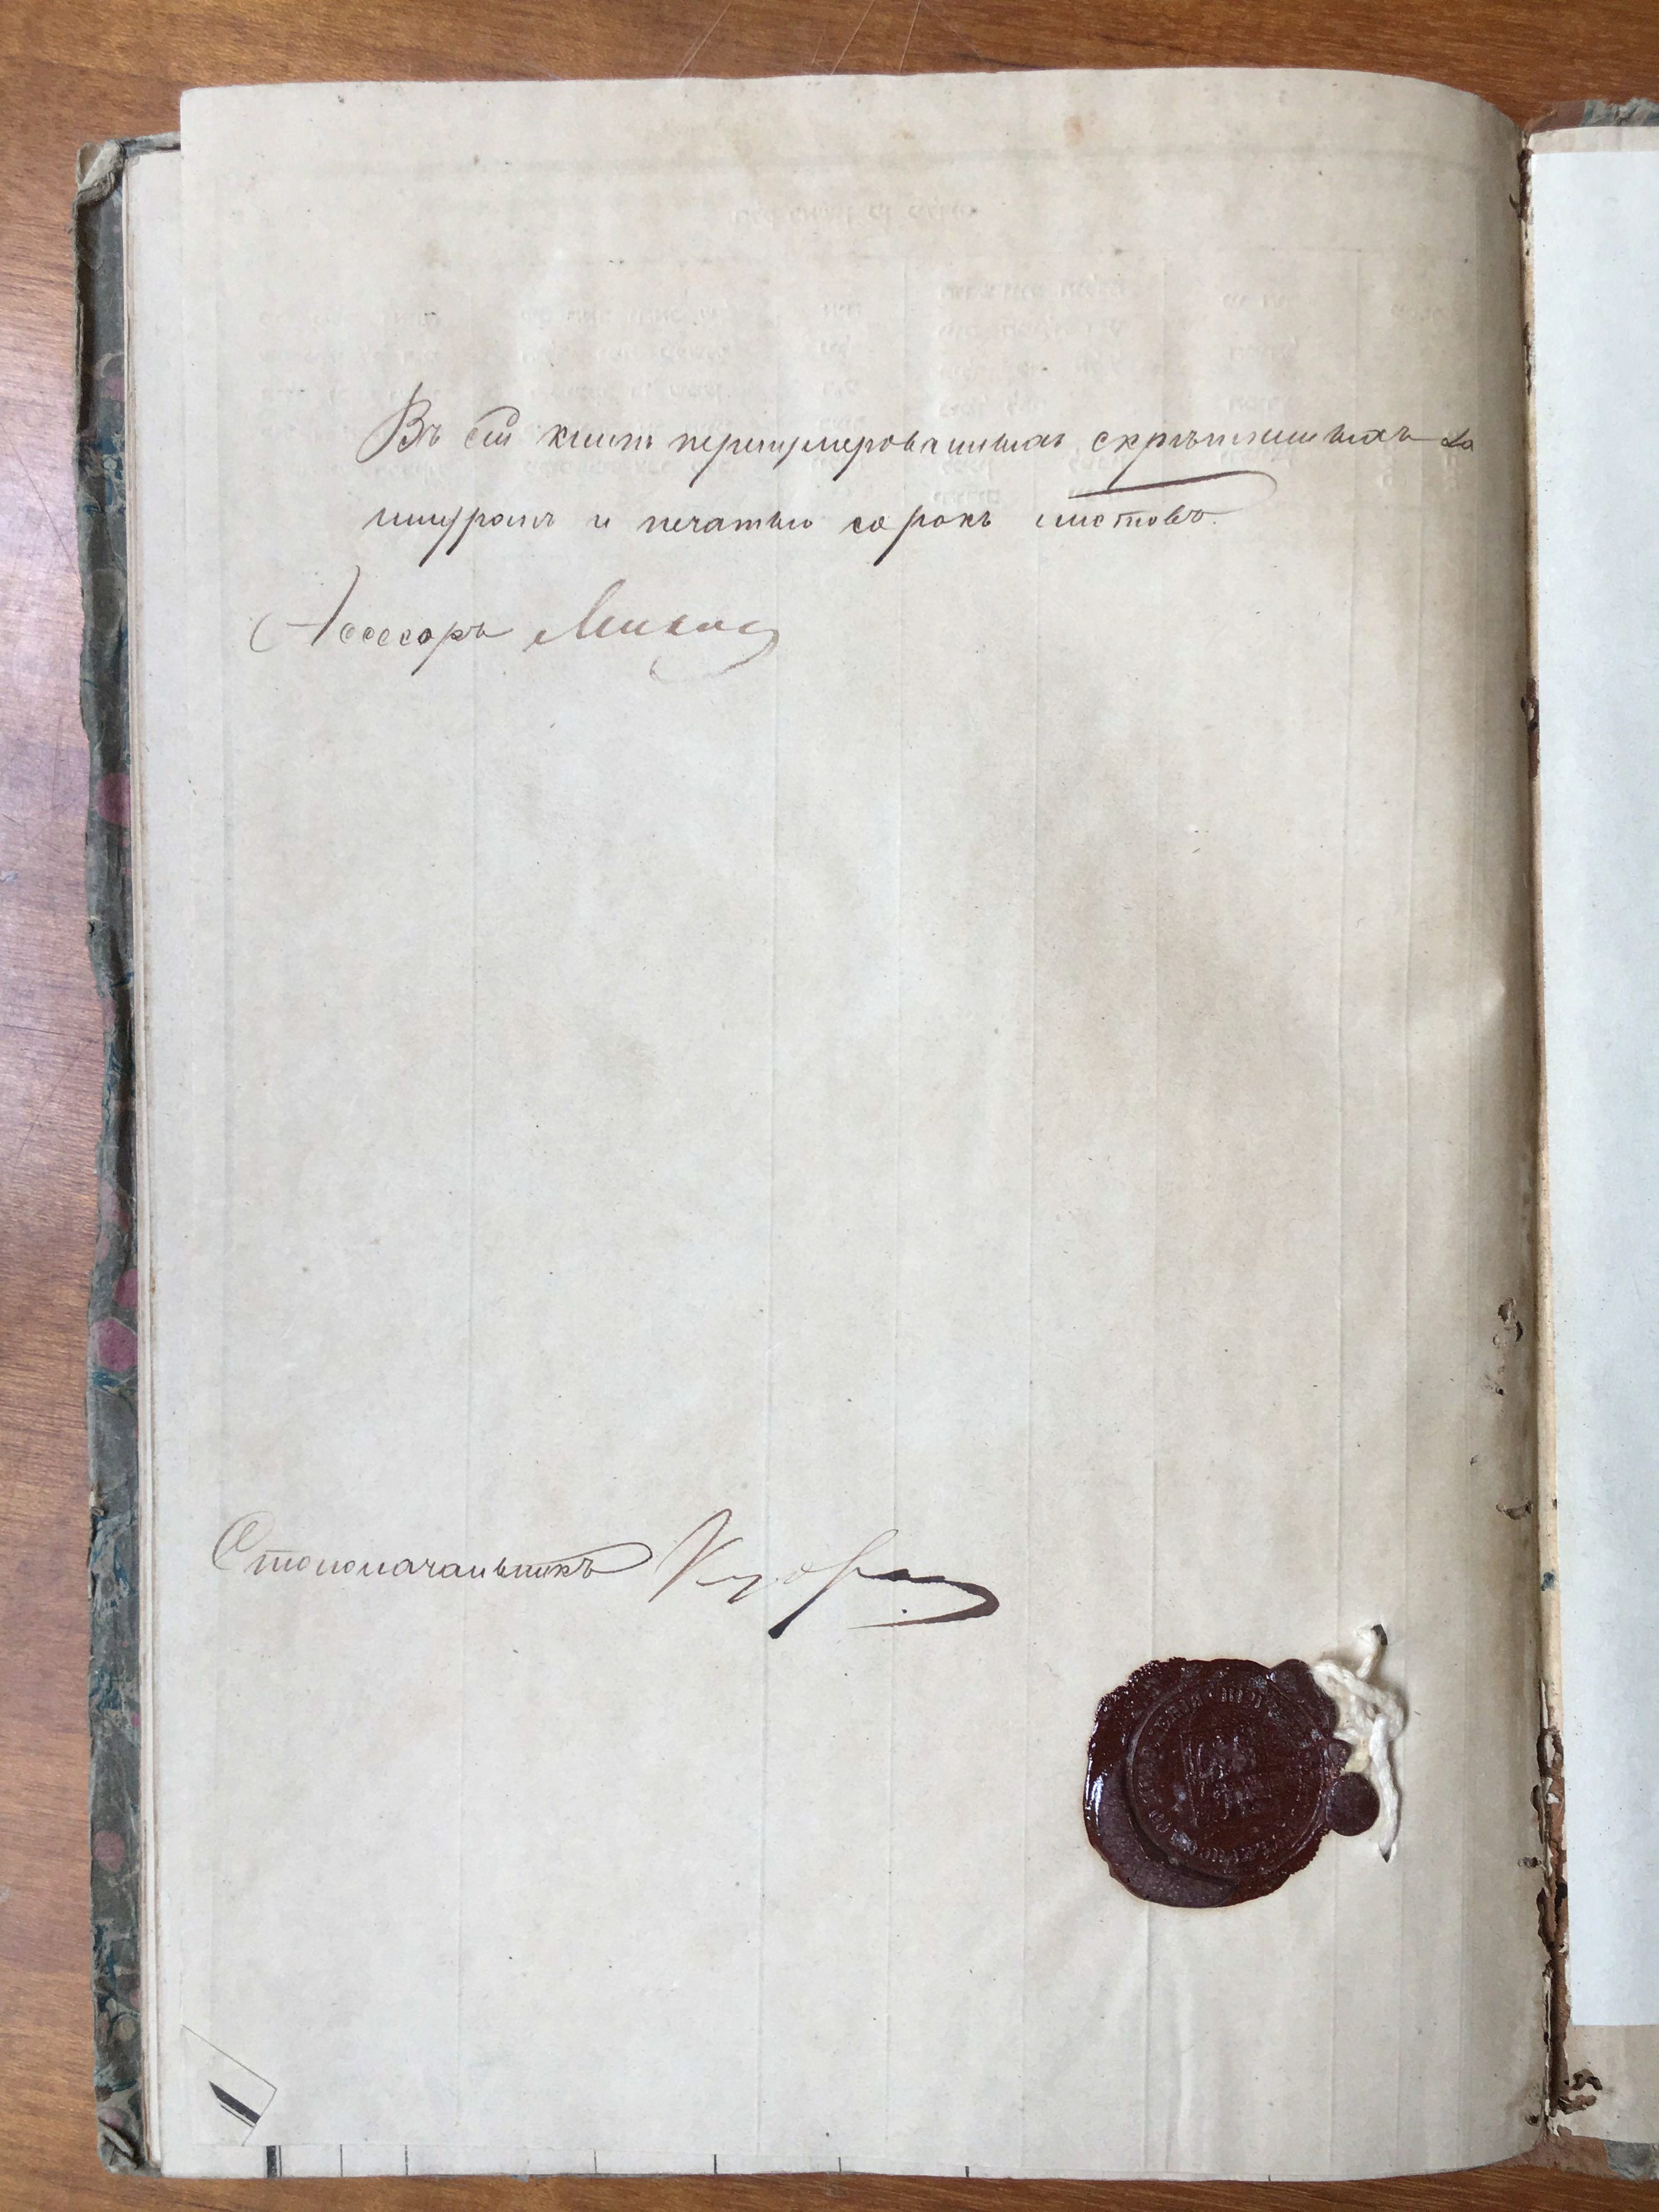 Въ сей книгѣ перенумерованныхъ, скрѣпленныхъ
шнуромъ и печатью сорокъ листовъ.
Ассесоръ
Столоначальникъ